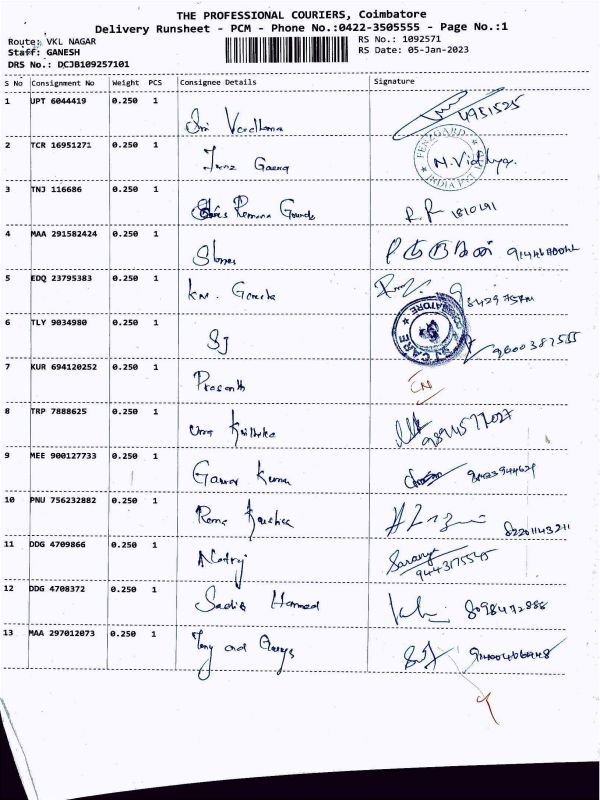 THE PROFESSIONAL COURIERS, Coimbatore
Delivery Runsheet - PCM - Phone No.:0422-3505555 - Page No.:1
Route: VKL NAGAR
RS No.: 1092571
Staff: GANESH
RS Date: 05-Jan-2023
DRS No.: DCJB109257101
S No Consignment No Weight PCS Consignee Details Signature
1 UPT 6044419 0.250 1 Sri Vardhama 4951525
2 TCR 16951271 0.250 1 PENZGARD INDIA PVT N. Vidhya
3 TNJ 116686 0.250 1 R.R 1810191
4 MAA 291582424 0.250 1 Stores
5 EDQ 23795383 0.250 1 km.
6 TLY 9034980 0.250 1 SJ SJ CARE COIMBATORE 9600387555
7 KUR 694120252 0.250 1 Prasanth CN
8 TRP 7888625 0.250 1 Uma
9 MEE 900127733 0.250 1 Kumar
10 PNU 756232882 0.250 1 Rama 82201143211
11 DDG 4709866 0.250 1 Natraj Saranya 9443175545
12 DDG 4708372 0.250 1 Sadiq Hammed 8098472888
13 MAA 297012073 0.250 1 Tony and Georgs